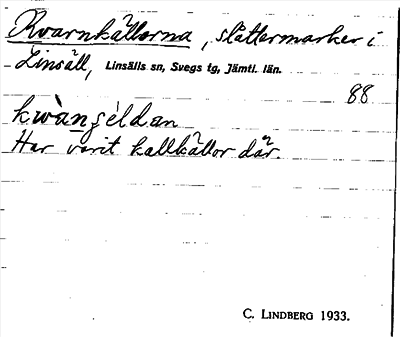 Kvarnkällorna, slåttermarker i
Linsäll, Linsälls sn, Svegs tg, Jämtl. län.
88
kwàn̲ʂéldan
Har varit kallkällor där.
C. LINDBERG 1933.